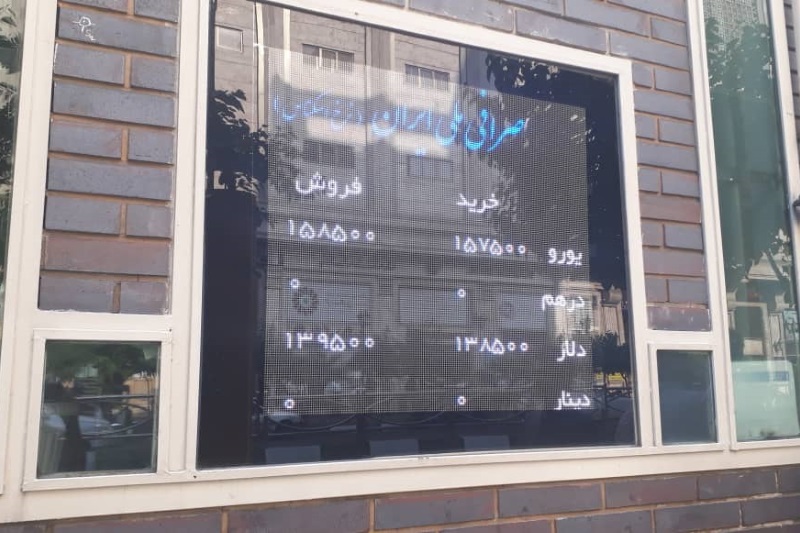 صرافی ملی ایران (نرخ اسکناس)
خرید فروش
یورو ۱۵۷۵۰۰ ۱۵۸۵۰۰
درهم ۰ ۰
دلار ۱۳۸۵۰۰ ۱۳۹۵۰۰
دینار ۰ ۰